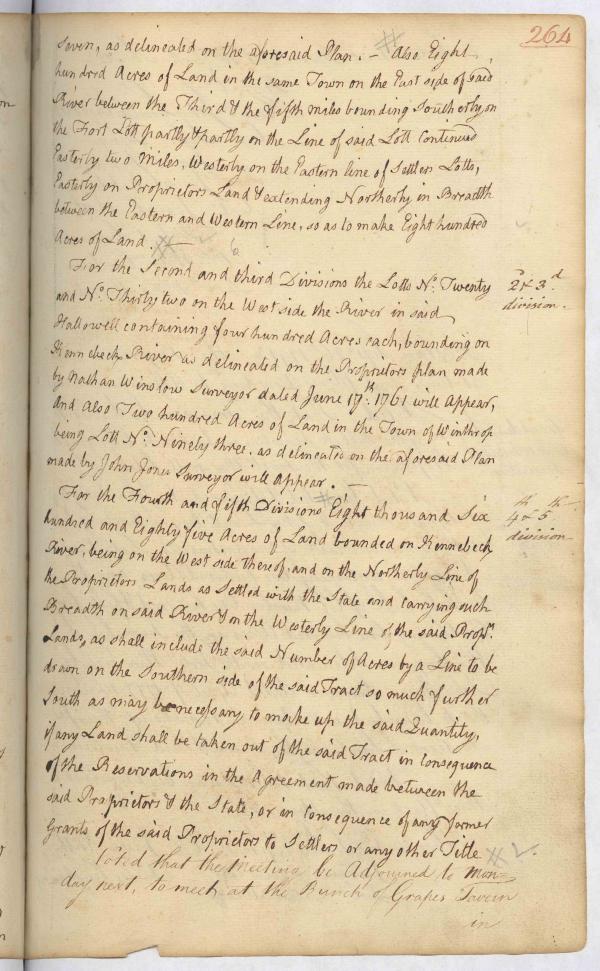 264
Seven, as delineated on the aforesaid Plan. — Also Eight
hundred Acres of Land in the same Town on the East side of said
River between the Third & the fifth miles bounding Southerly on
the Fort Lott partly & partly on the Line of said Lott continued
Easterly two Miles, Westerly on the Eastern line of Settlers Lotts,
Easterly on Proprietors Land & extending Northerly in Breadth
between the Eastern and Western Line, so as to make Eight hundred
Acres of Land.
For the Second and third Divisions the Lotts No. Twenty
2d & 3d
and No. Thirty two on the West side the River in said
division.
Hallowell containing four hundred Acres each, bounding on
Kennebeck River as delineated on the Proprietors plan made
by Nathan Winslow Surveyor dated June 17th. 1761 will Appear,
And Also Two hundred Acres of Land in the Town of Winthrop
being Lott No. Ninety three. as delineated on the aforesaid Plan
made by John Jones Surveyor will Appear. —
For the Fourth and fifth Divisions Eight thousand Six
4th & 5th
hundred and Eighty five Acres of Land bounded on Kennebeck
division
River, being on the West side thereof, and on the Northerly Line of
the Proprietors Lands as Settled with the State and carrying such
Breadth on said River & on the Westerly Line of the said Proprs.
Lands, as shall include the said Number of Acres by a Line to be
drawn on the Southern side of the said Tract so much further
South as may be necessary to make up the said Quantity,
if any Land shall be taken out of the said Tract in Consequence
of the Reservations in the Agreement made between the
said Proprietors & the State, or in Consequence of any former
Grants of the said Proprietors to Settlers or any other Title.
Voted that the Meeting be Adjourned to Mon-
day next, to meet at the Bunch of Grapes Tavern
in